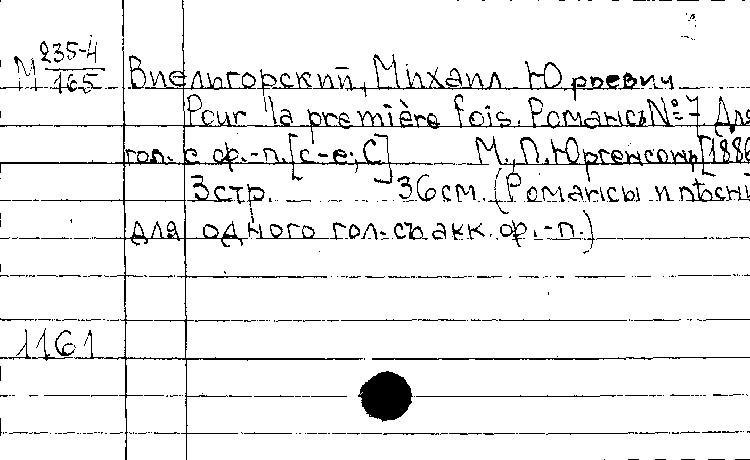 М 235-4/165 Виельгорский, Михаил Юрьевич
Pour la première fois. Романсъ № 7 Для
гол. с ф.-п. [с-е; С] М., П. Юргенсонъ, [1886
3 стр. 36 см. (Романсы и пѣсни
для одного гол. съ акк. ф.-п.)
1161